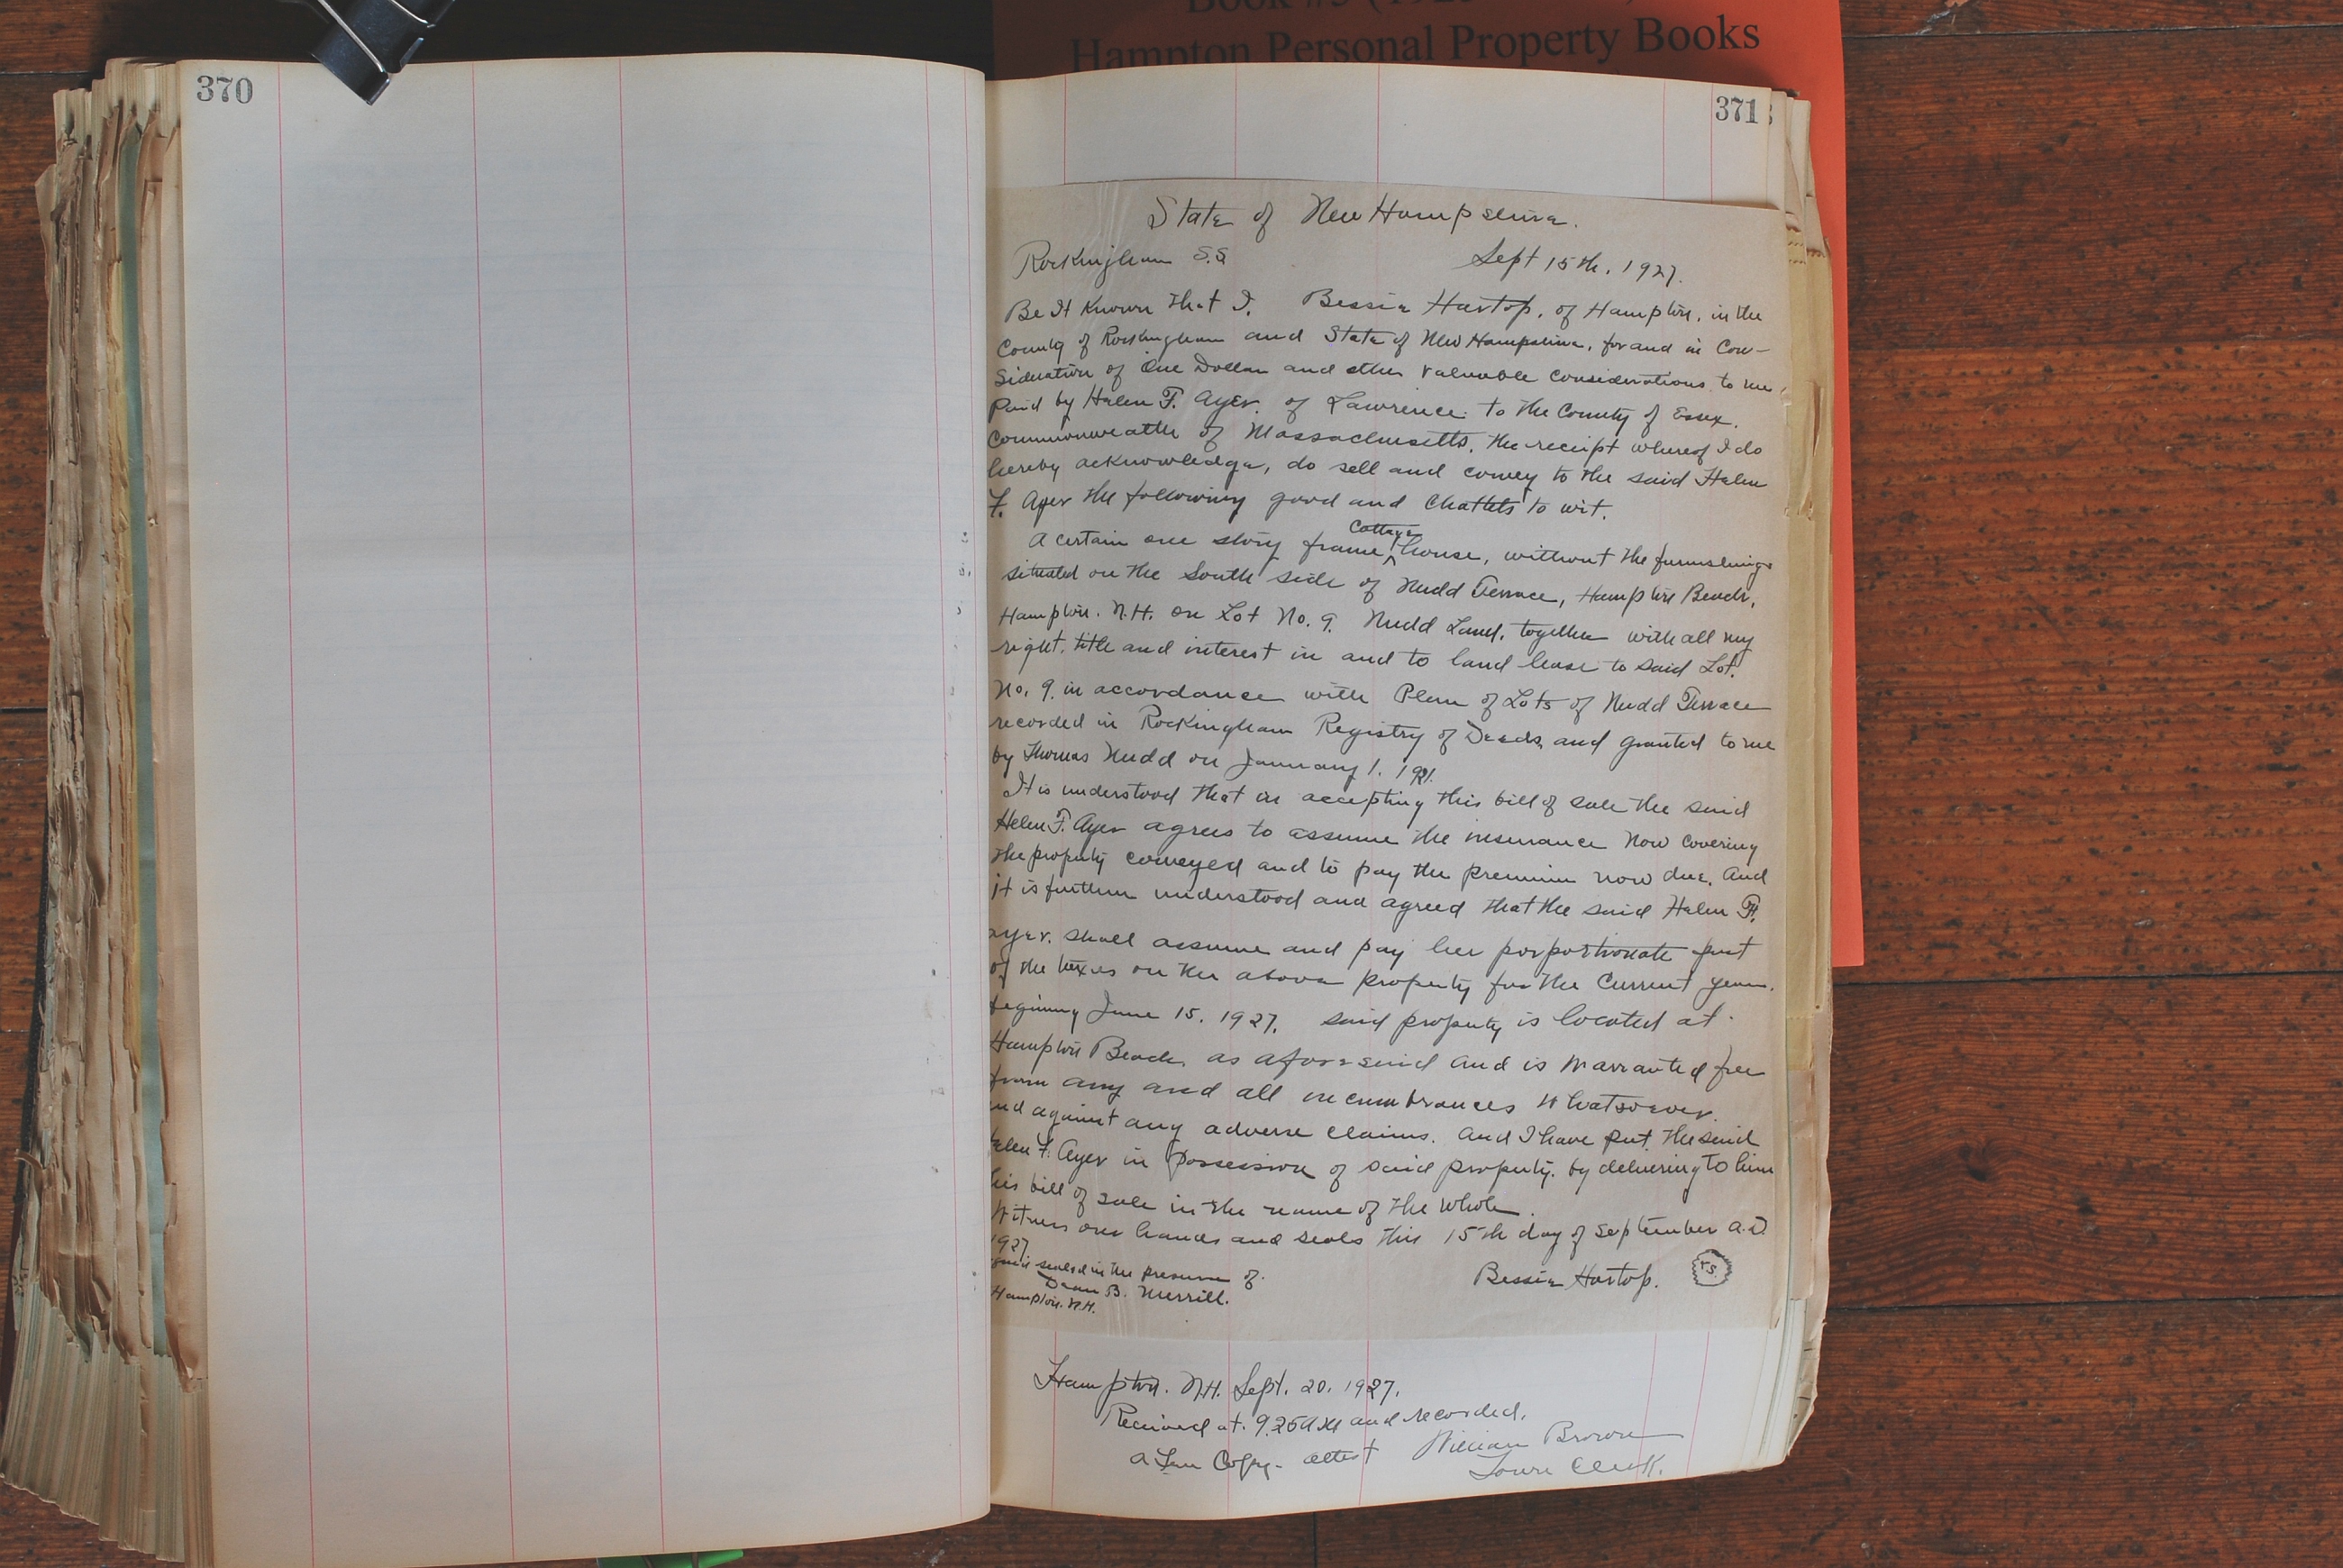 Hampton Personal Property Books
370
371
State of New Hampshire.
Rockingham S.S
Sept 15th, 1927.
Be It Known that I. Bessie Hartop, of Hampton, in the
County of Rockingham and State of New Hampshire, for and in Con-
sideration of One Dollar and other valuable considerations to me
Paid by Helen F. Ayer. of Lawrence. to the County of Essex.
Commonwealth of Massachusetts, the receipt whereof I do
hereby acknowledge, do sell and convey to the said Helen
F. Ayer the following good and Chattels to wit.
Cottage
A certain one story frame ^ house, without the furnishings
situated on the South side of Nudd Terrace, Hampton Beach,
Hampton. N.H. on Lot No. 9. Nudd Land, together with all my
right, title and interest in and to land lease to said Lot
No. 9. in accordance with Plan of Lots of Nudd Terrace
recorded in Rockingham Registry of Deeds, and granted to me
by Thomas Nudd on January 1. 1921.
It is understood that in accepting this bill of sale the said
Helen F. Ayer agrees to assume the insurance now covering
the property conveyed and to pay the premium now due. And
it is further understood and agreed that the said Helen F.
Ayer. shall assume and pay her porportionate part
of the taxes on the above property for the current year.
beginning June 15, 1927. Said property is located at
Hampton Beach as aforesaid and is warranted free
from any and all incumbrances whatsoever.
and against any adverse claims. And I have put the said
Helen F. Ayer in possession of said property. by delivering to him
this bill of sale in the name of the whole.
Witness our hands and seals this 15th day of September A.D
1927
sealed in the presence of.
Dean B. Merrill.
Hampton. N.H.
Bessie Hartop.
Hampton. N.H. Sept. 20. 1927.
Received at. 9.25 AM and recorded.
a True Copy- attest William Brown
Town Clerk.